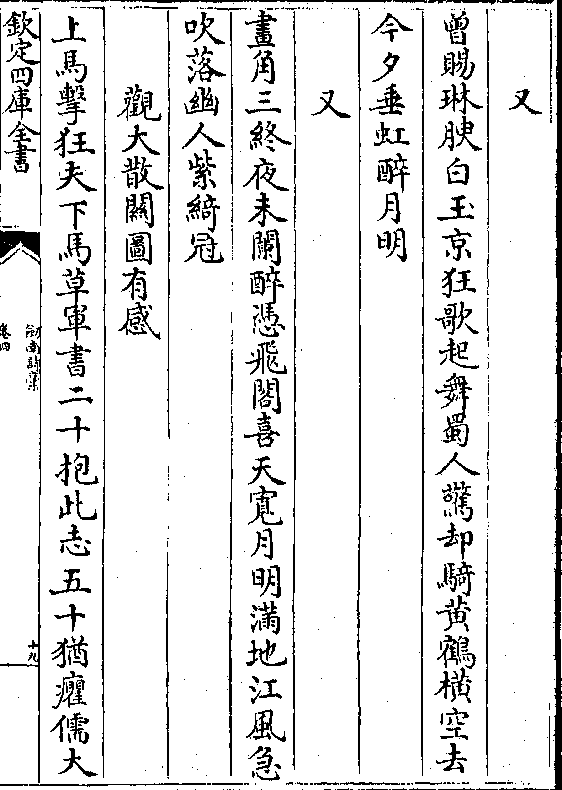 又
曾賜琳腴白玉京狂歌起舞蜀人驚却騎黄鶴橫空去
今夕垂虹醉月明
又
畫角三終夜未闌醉憑飛閣喜天寛月明滿地江風急
吹落幽人紫綺冠
觀大散關圖有感
上馬擊狂夫下馬草軍書二十抱此志五十猶癯儒大
欽定四庫全書
劍南詩稾
卷四
十九